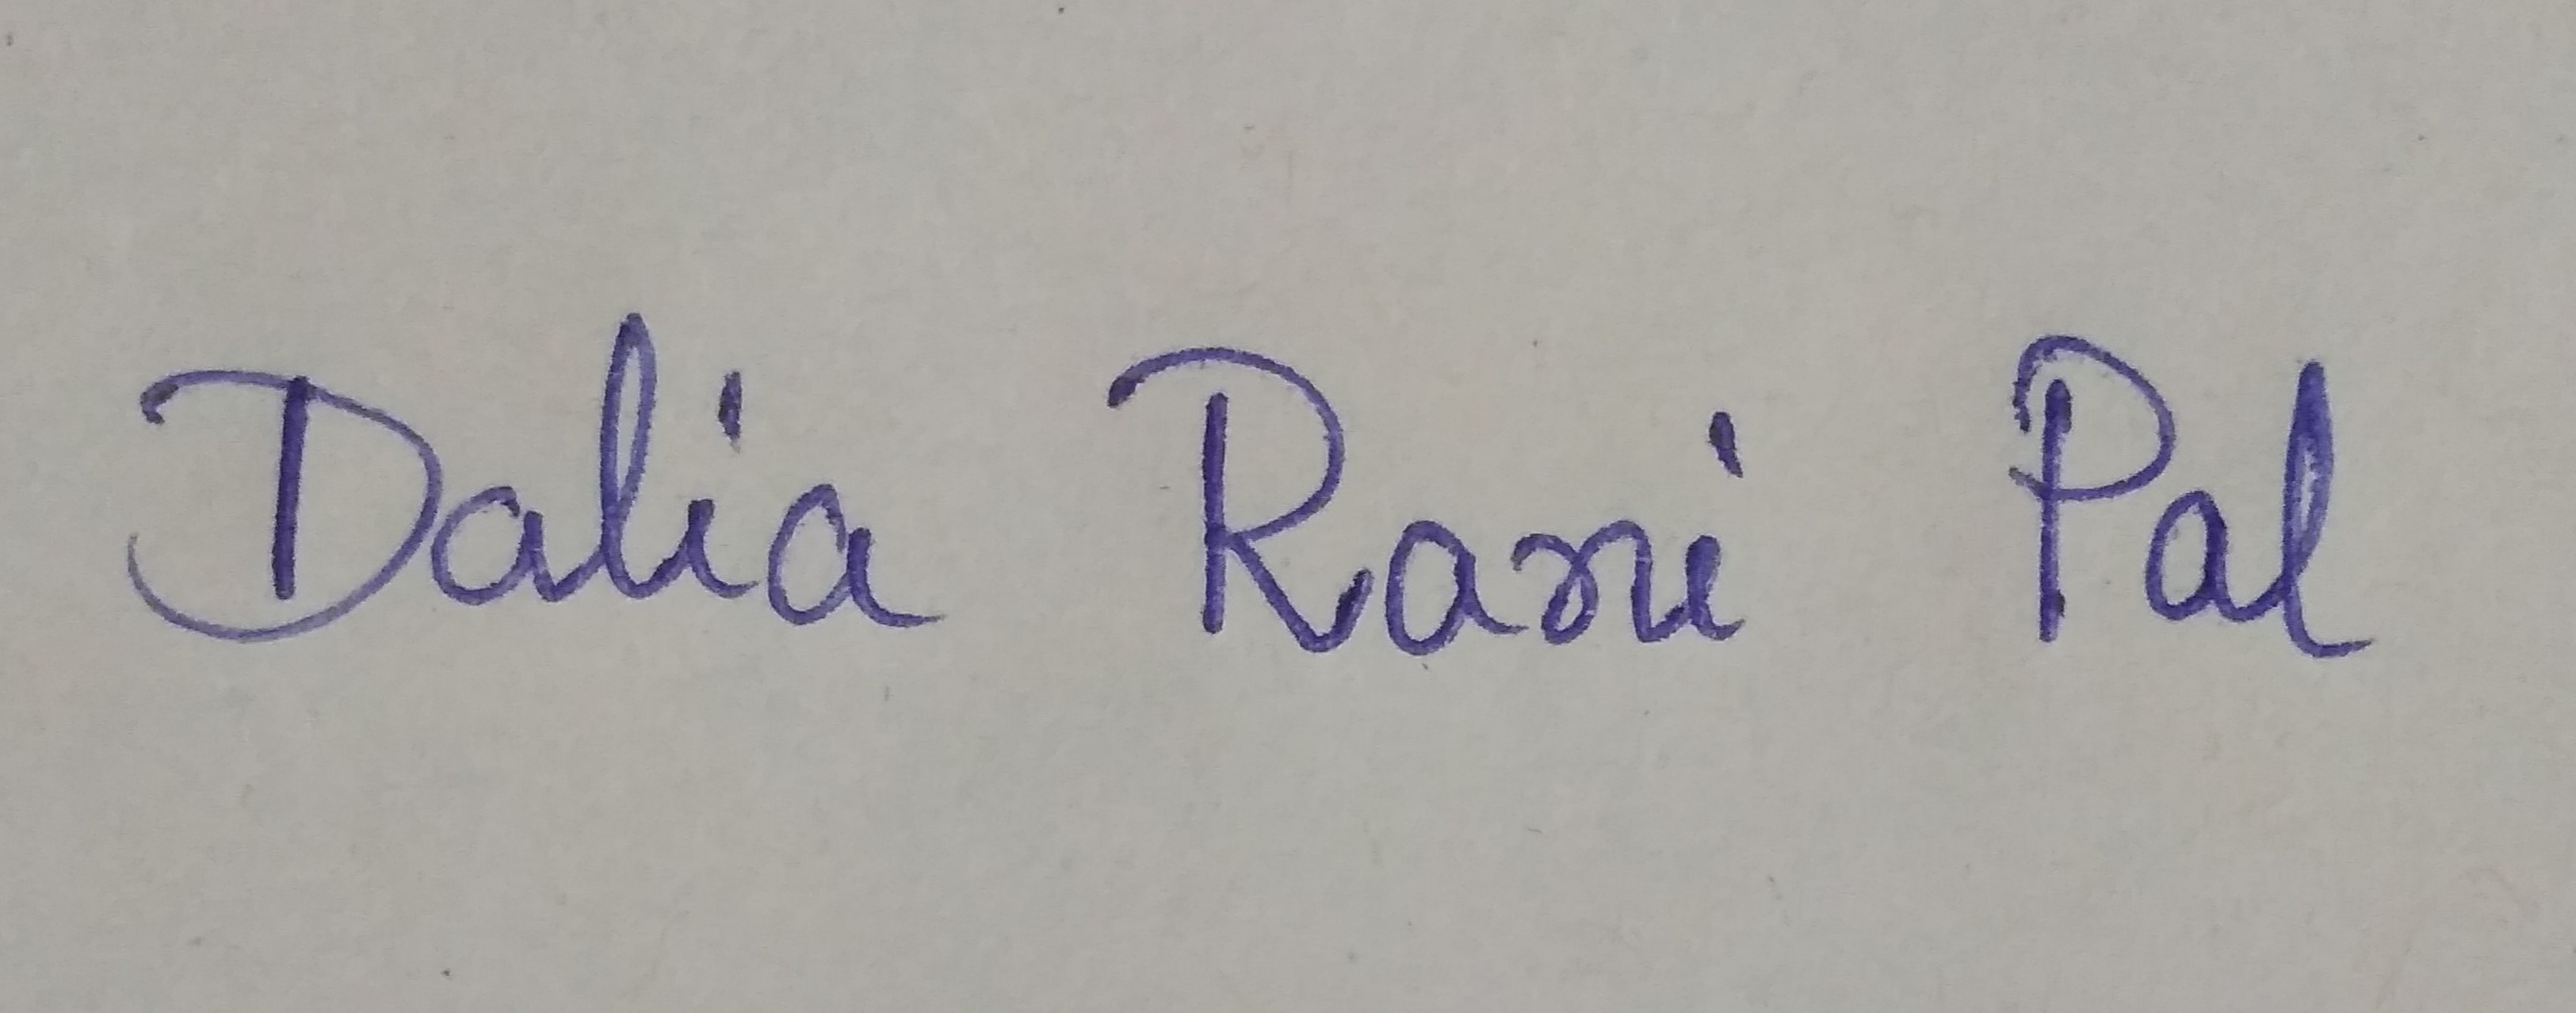 Dalia Rani Pal